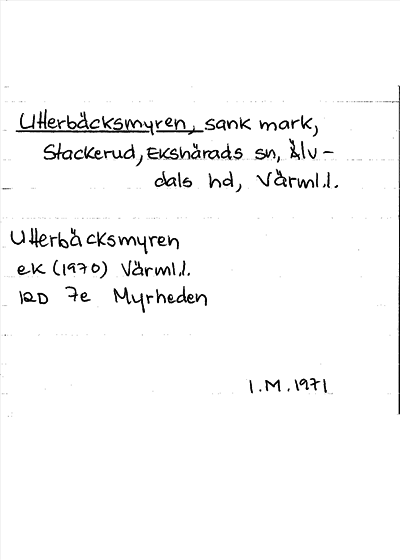 Utterbäcksmyren, sank mark,
Stackerud, Ekshärads sn, Älv-
dals hd, Värml.l.
Utterbäcksmyren
ek (1970) Värml.l.
12D 7e Myrheden
I.M. 1971